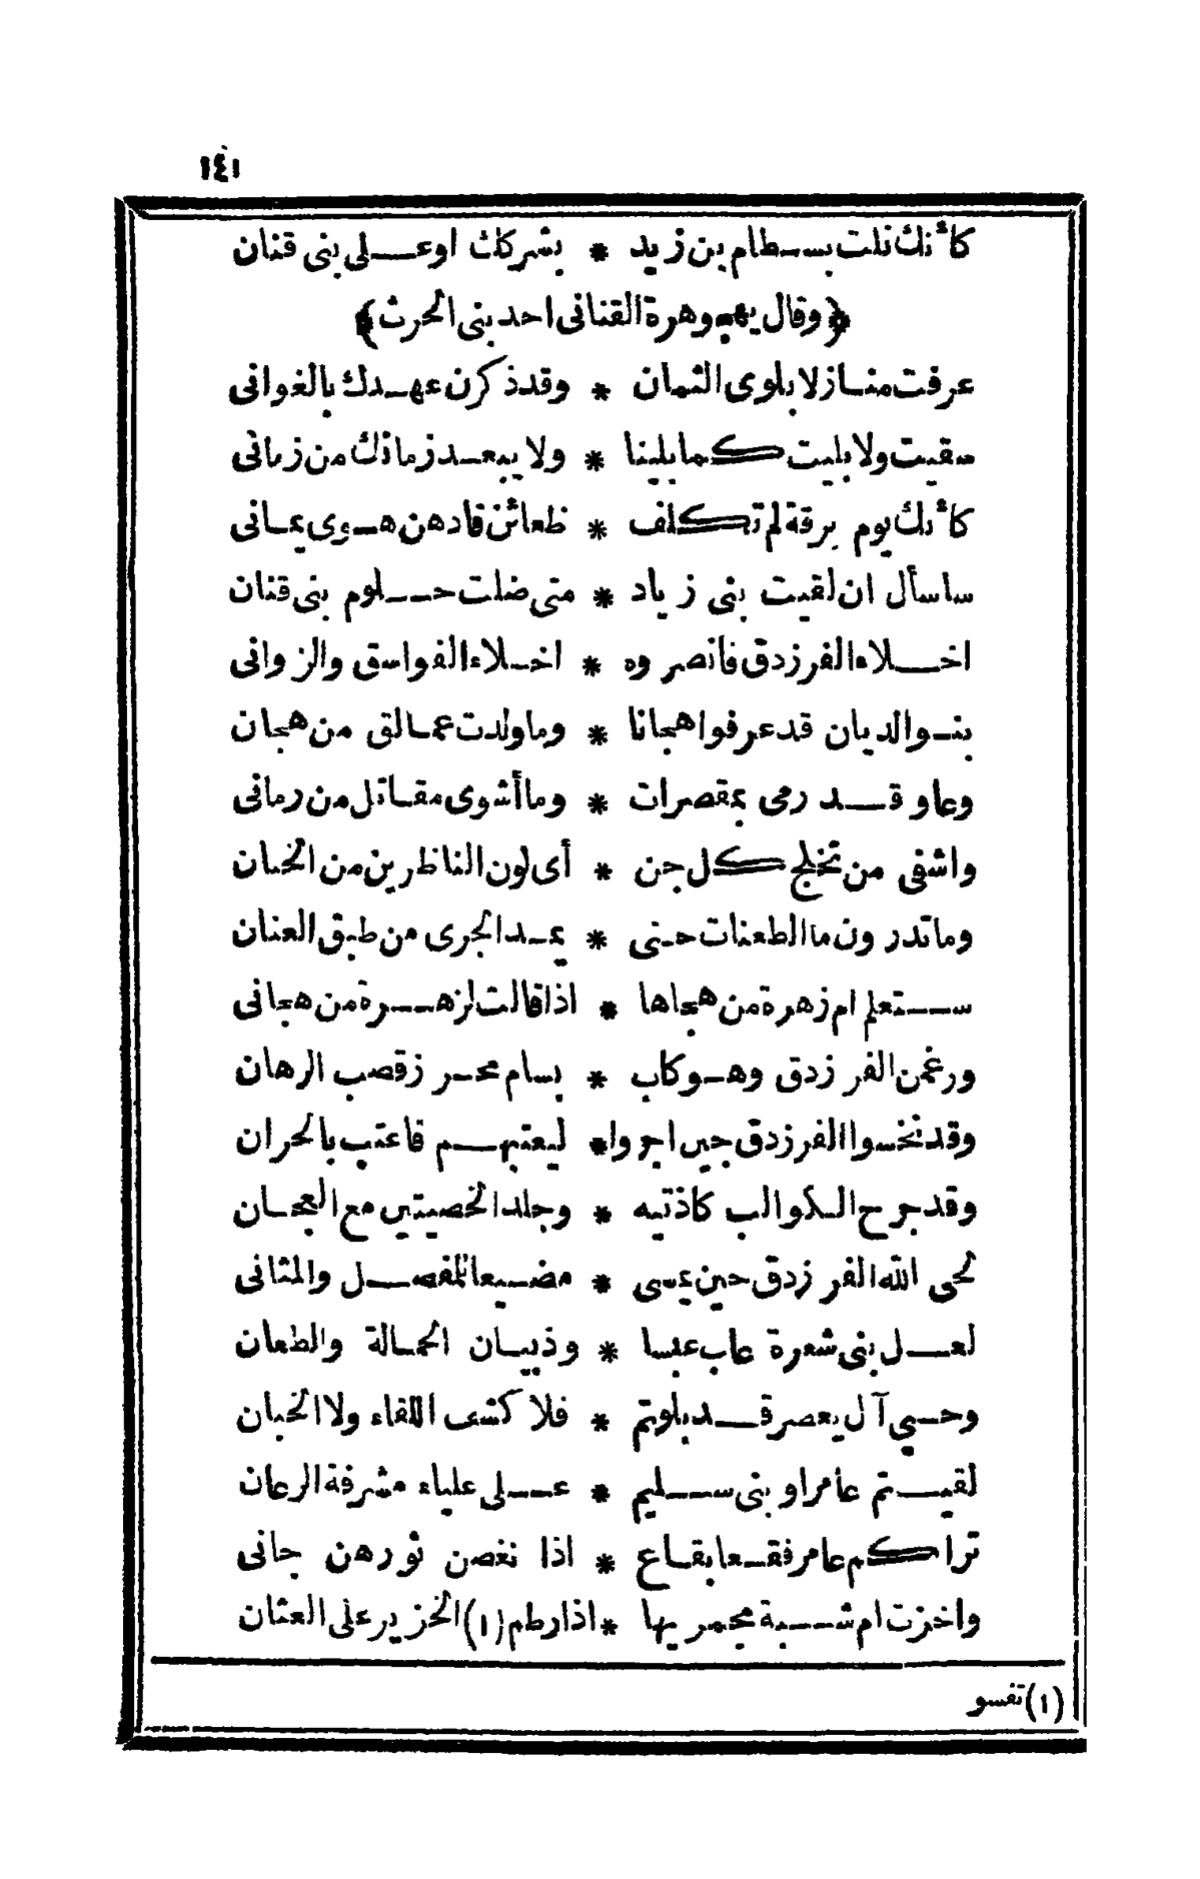 ١٤١
كأنك نلت بسطام بن زيد * بشركك او على بنى قنان
﴿وقال يهجو هرة القنانى احد بنى الحرث﴾
عرفت منازلا بلوى الثمان * وقد ذكرن عهدك بالغوانى
سقيت ولا بليت كما بلينا * ولا يبعد زمانك من زمانى
كأنك يوم برقة لم تكلف * ظعائن قادهن هوى يمانى
ساسأل ان لقيت بنى زياد * متى ضلت حلوم بنى قنان
اخلاء الفرزدق فانصروه * اخلاء الفواسق والزوانى
بنو الديان قد عرفوا هجانا * وما ولدت عمالق من هجان
وعاو قد رمى بمقصرات * وما أشوى مقاتل من رمانى
واشفى من تخلج كل جن * أى لون الناظرين من الخنان
وما تدرون ما الطعنات حتى * يمد الجرى من طبق العنان
ستعلم ام زهرة من هجاها * اذا قالت لزهرة من هجانى
ورغمن الفرزدق وهو كاب * بسام محرز قصب الرهان
وقد نخسوا الفرزدق حين اجروا * ليعتبهم فاعتب بالحران
وقد جرح الكوالب كاذتيه * وجلد الخصيتين مع العجان
لحى الله الفرزدق حين يمسى * مضيعا للمفصل والمثانى
لعل بنى شعرة عاب عبسا * وذبيان الحمالة والطعان
وحيي آل يعصر قد بلوتم * فلا كشف اللقاء ولا الخبان
لقيتم عامرا وبنى سليم * على علياء مشرفة الرعان
تراكم عامر فقعا بقاع * اذا نغصن ثورهن جانى
واخزت ام شبة مجمريها * اذا رطم (١) الخزير على العثان
(١) تفسو